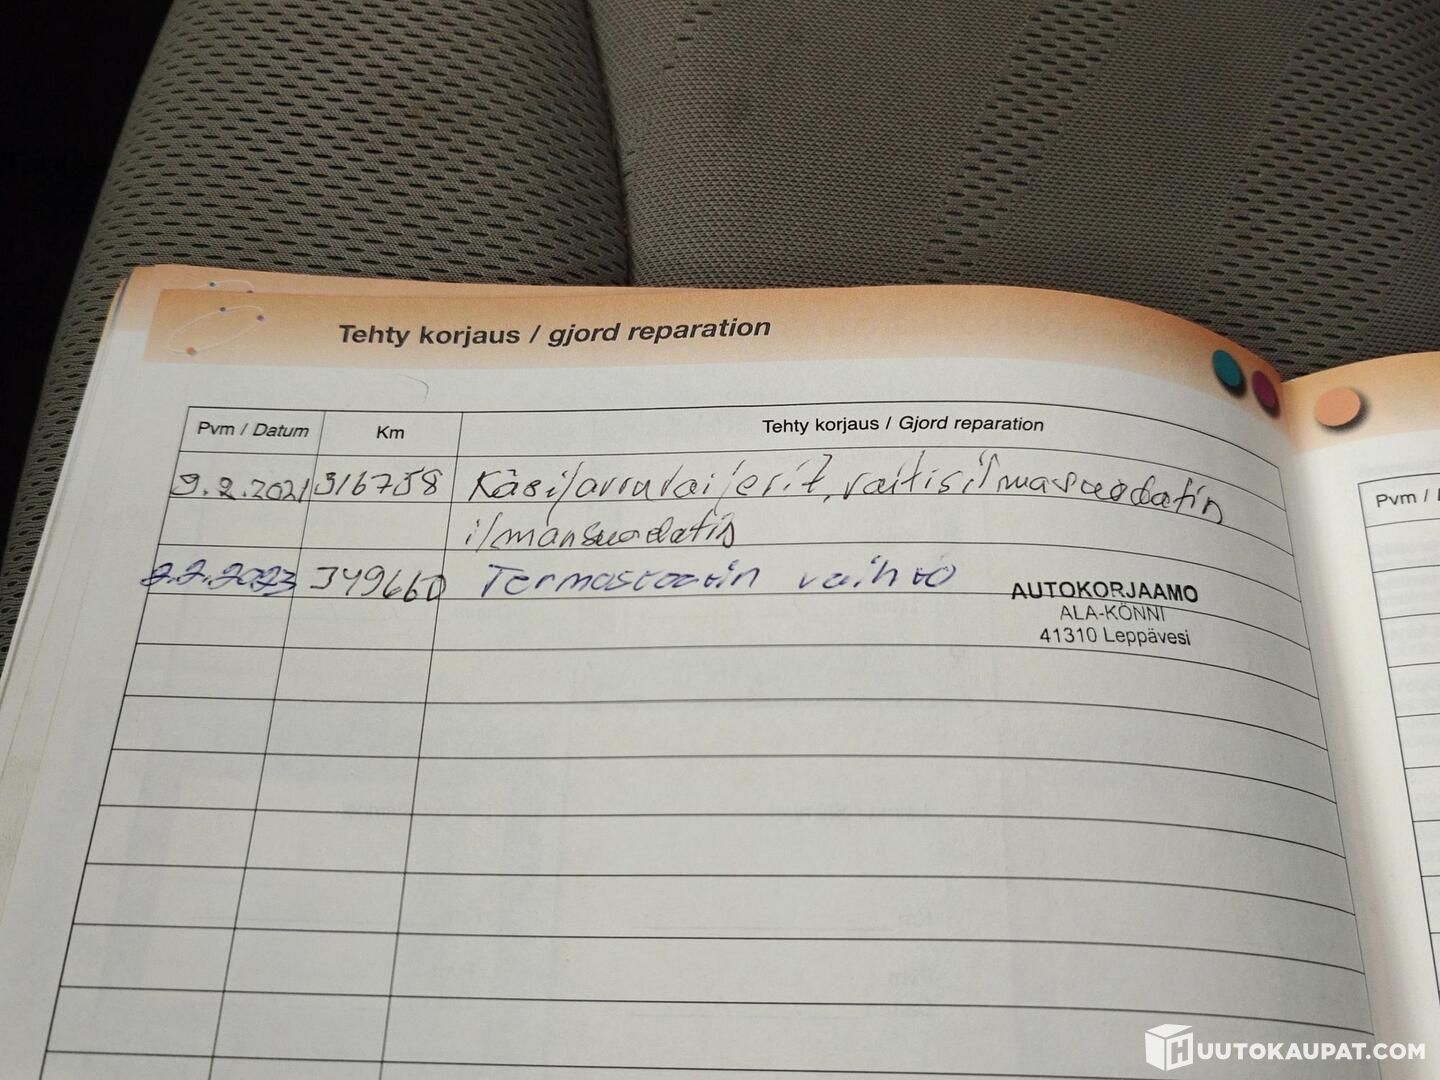 Tehty korjaus / gjord reparation
Pvm / Datum Km Tehty korjaus / Gjord reparation
9.2.2021 316758 Käsijarruvaijerit, raitisilmasuodatin
ilmansuodatin
2.2.2023 349660 Termostaatin vaihto
AUTOKORJAAMO
ALA-KÖNNI
41310 Leppävesi
Pvm /
HUUTOKAUPAT.COM